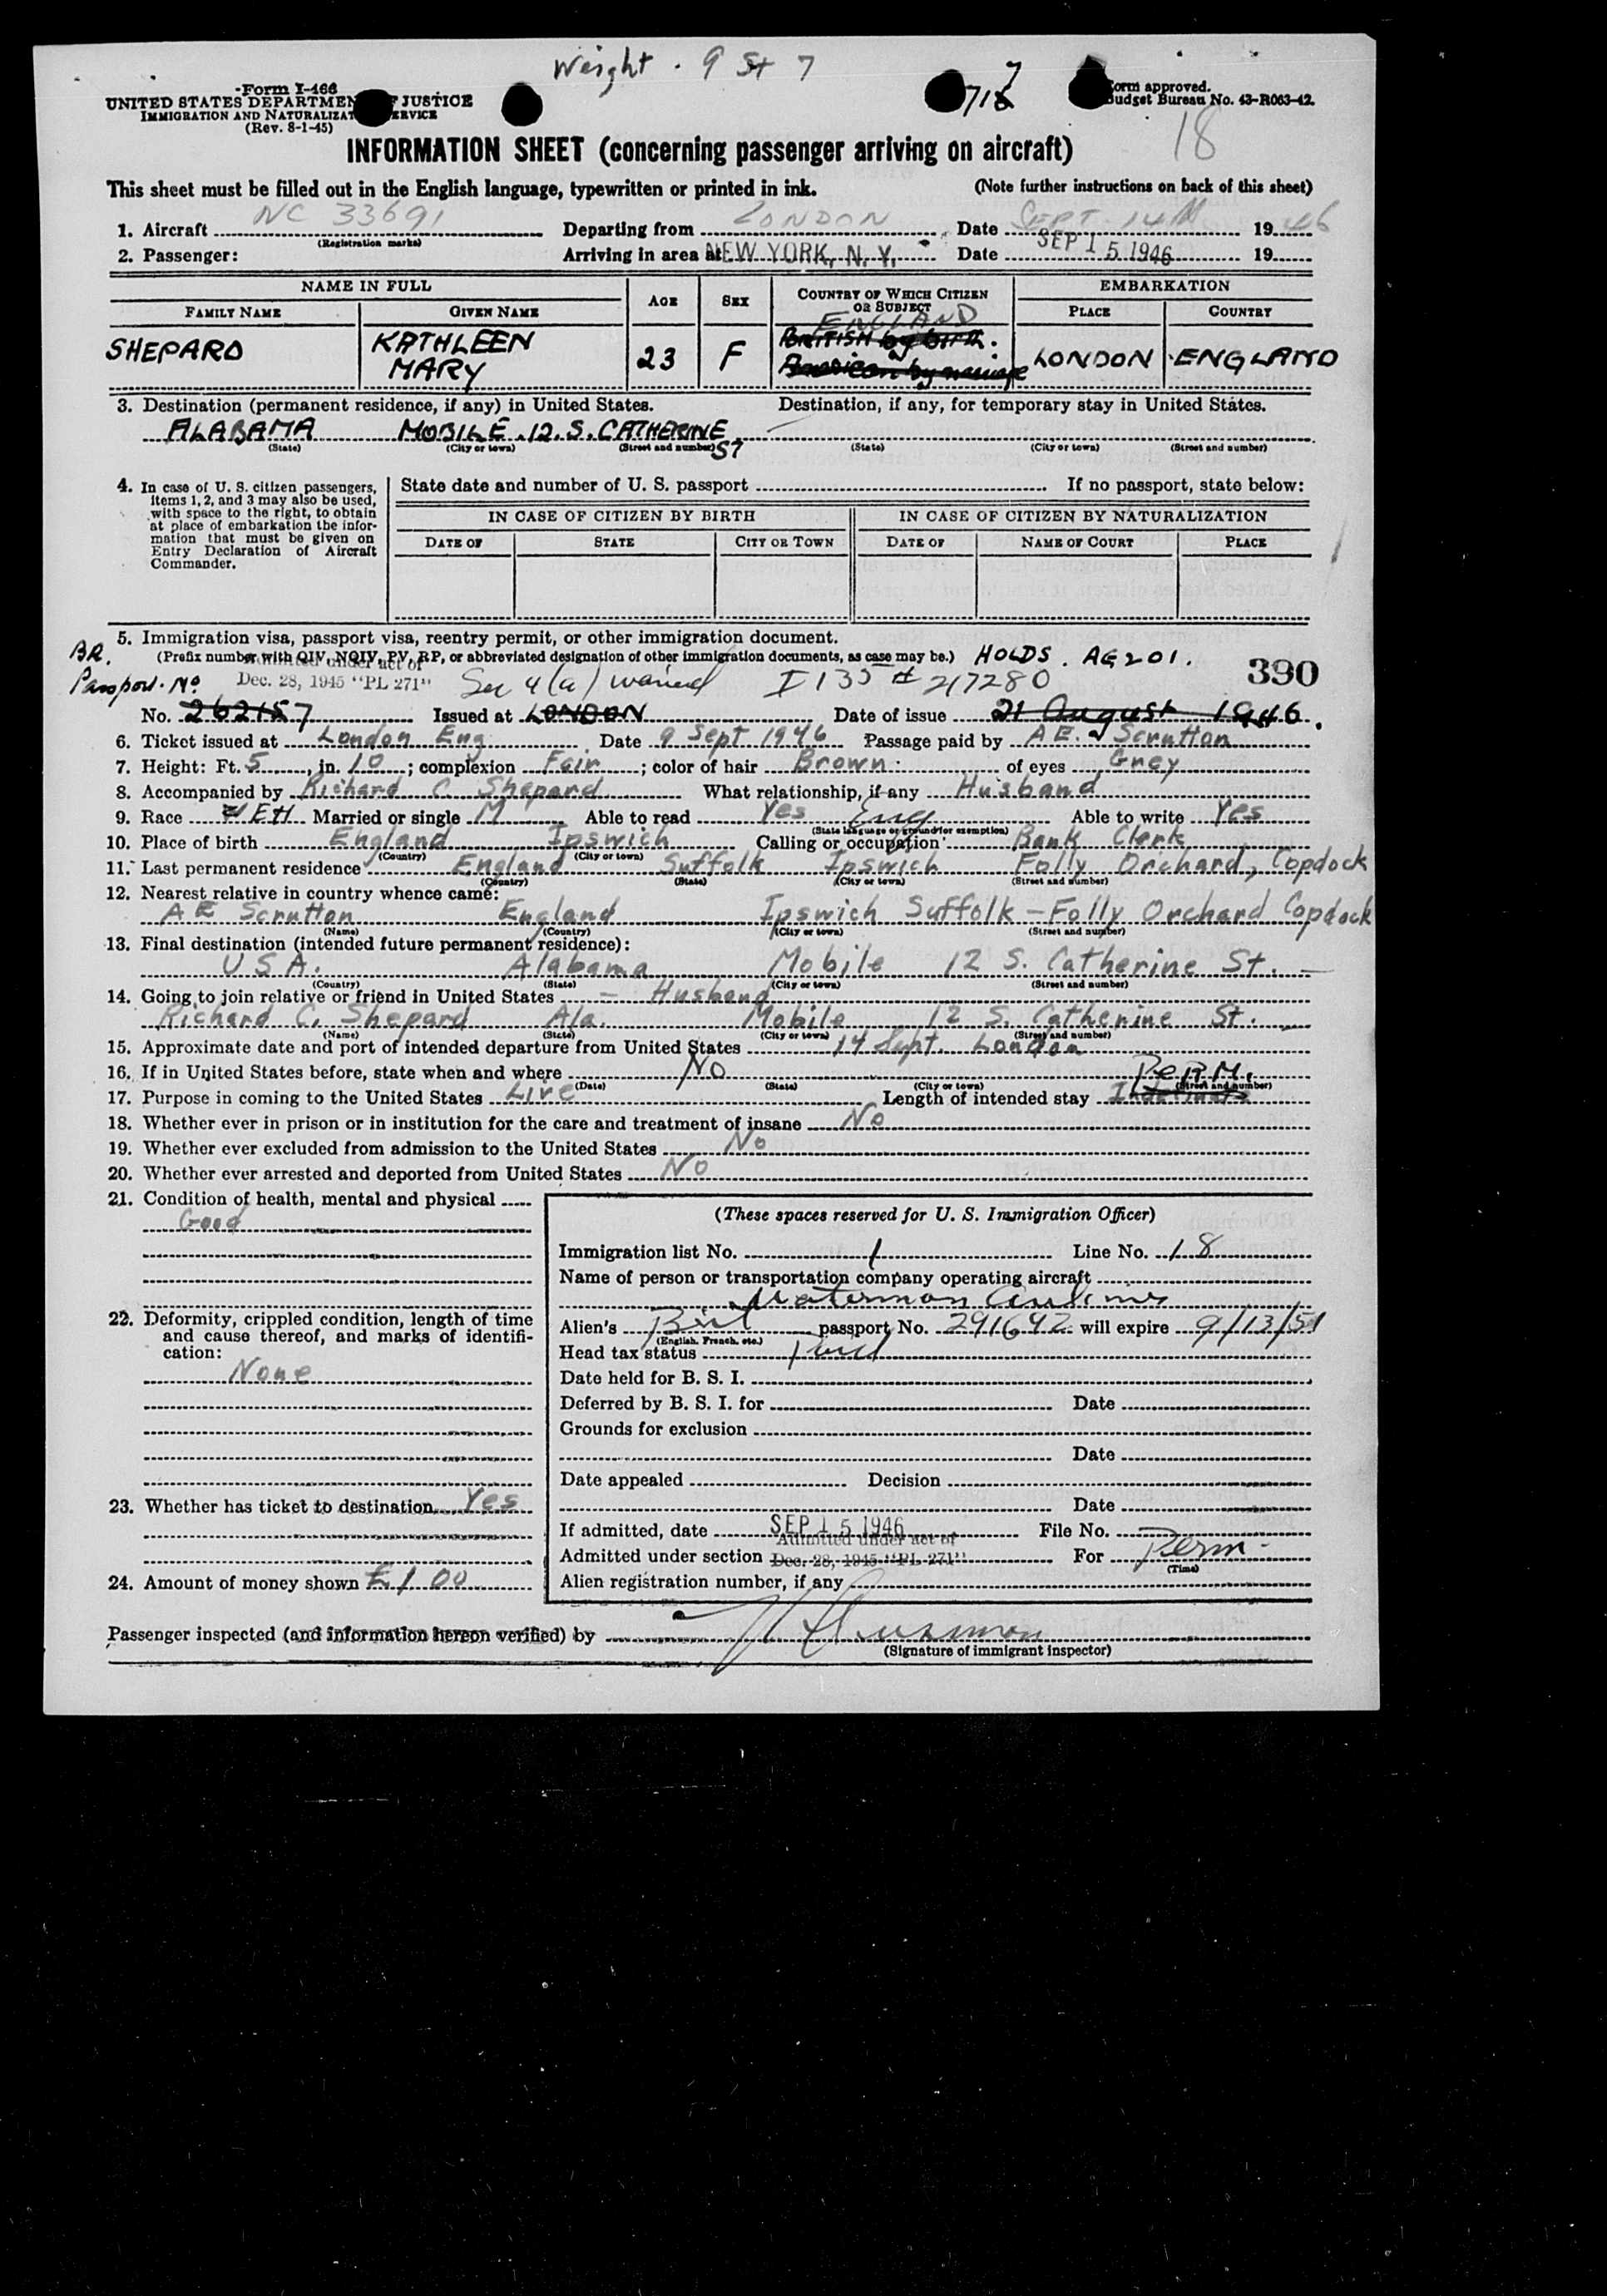 Weight . 9 St 7
Form I-466
UNITED STATES DEPARTMENT OF JUSTICE
IMMIGRATION AND NATURALIZATION SERVICE
(Rev. 8-1-45)
Form approved.
Budget Bureau No. 43-R063-42.
18
INFORMATION SHEET (concerning passenger arriving on aircraft)
This sheet must be filled out in the English language, typewritten or printed in ink. (Note further instructions on back of this sheet)
1. Aircraft NC 33691 Departing from LONDON Date SEPT. 14th 1946
(Registration marks)
2. Passenger: Arriving in area at NEW YORK, N. Y. Date SEP 15 1946 19
NAME IN FULL AGE SEX COUNTRY OF WHICH CITIZEN OR SUBJECT EMBARKATION
FAMILY NAME GIVEN NAME PLACE COUNTRY
ENGLAND
SHEPARD KATHLEEN MARY 23 F BRITISH by birth. American by marriage LONDON ENGLAND
3. Destination (permanent residence, if any) in United States. Destination, if any, for temporary stay in United States.
ALABAMA MOBILE. 12. S. CATHERINE ST
(State) (City or town) (Street and number) (State) (City or town) (Street and number)
4. In case of U. S. citizen passengers, items 1, 2, and 3 may also be used, with space to the right, to obtain at place of embarkation the information that must be given on Entry Declaration of Aircraft Commander.
State date and number of U. S. passport If no passport, state below:
IN CASE OF CITIZEN BY BIRTH IN CASE OF CITIZEN BY NATURALIZATION
DATE OF STATE CITY OR TOWN DATE OF NAME OF COURT PLACE
5. Immigration visa, passport visa, reentry permit, or other immigration document.
(Prefix number with QIV, NQIV, PV, RP, or abbreviated designation of other immigration documents, as case may be.) HOLDS. AG201.
BR. Passport. No
Admitted under act of
Dec. 28, 1945 "PL 271" Sec 4 (a) waived I 135 # 217280 390
No. 262157 Issued at LONDON Date of issue 21 August 1946.
6. Ticket issued at London Eng Date 9 Sept 1946 Passage paid by A E. Scrutton
7. Height: Ft. 5, in. 10; complexion Fair; color of hair Brown of eyes Grey
8. Accompanied by Richard C Shepard What relationship, if any Husband
9. Race WEH Married or single M Able to read Yes Eng Able to write Yes
(State language or ground for exemption)
10. Place of birth England Ipswich Calling or occupation Bank Clerk
(Country) (City or town)
11. Last permanent residence England Suffolk Ipswich Folly Orchard, Copdock
(Country) (State) (City or town) (Street and number)
12. Nearest relative in country whence came:
A E Scrutton England Ipswich Suffolk - Folly Orchard Copdock
(Name) (Country) (City or town) (Street and number)
13. Final destination (intended future permanent residence):
USA. Alabama Mobile 12 S. Catherine St.
(Country) (State) (City or town) (Street and number)
14. Going to join relative or friend in United States - Husband
Richard C. Shepard Ala. Mobile 12 S. Catherine St.
(Name) (State) (City or town) (Street and number)
15. Approximate date and port of intended departure from United States 14 Sept. London
16. If in United States before, state when and where No
(Date) (State) (City or town) (Street and number)
PERM.
17. Purpose in coming to the United States Live Length of intended stay Indefinate
18. Whether ever in prison or in institution for the care and treatment of insane No
19. Whether ever excluded from admission to the United States No
20. Whether ever arrested and deported from United States No
21. Condition of health, mental and physical
Good
22. Deformity, crippled condition, length of time and cause thereof, and marks of identification:
None
23. Whether has ticket to destination Yes
24. Amount of money shown £1 00
(These spaces reserved for U. S. Immigration Officer)
Immigration list No. 1 Line No. 18
Name of person or transportation company operating aircraft
Waterman Airlines
Alien's Brit passport No. 291692 will expire 9/13/51
(English, French, etc.)
Head tax status Paid
Date held for B. S. I.
Deferred by B. S. I. for Date
Grounds for exclusion
Date
Date appealed Decision
Date
If admitted, date SEP 15 1946 File No.
Admitted under act of
Admitted under section Dec. 28, 1945 "PL 271" For Perm.
(Time)
Alien registration number, if any
Passenger inspected (and information hereon verified) by
(Signature of immigrant inspector)